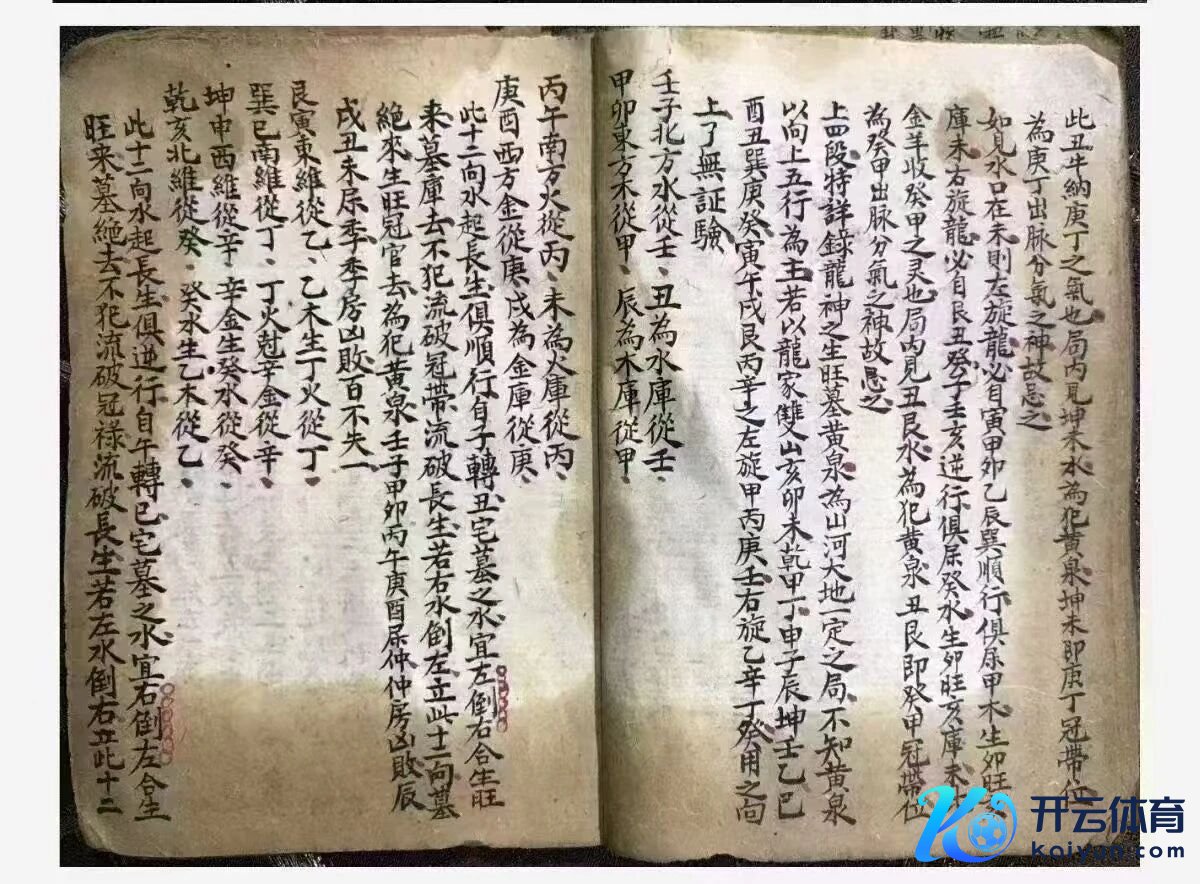 此丑牛納庚丁之氣也局內見坤未水為犯黃泉坤未即庚丁冠帶位
為庚丁出脉分氣之神故忌之
如見水口在未則左旋龍必自寅甲卯乙辰巽順行俱屬甲木生卯旺
庫未右旋龍必自艮丑癸子壬亥逆行俱屬癸水生卯旺亥庫未
金羊收癸甲之灵也局內見丑艮水為犯黃泉丑艮即癸甲冠帶位
為癸甲出脉分氣之神故忌之
上四段特詳錄龍神之生旺墓黃泉為山河大地一定之局不知黃泉
以向上五行為主若以龍家雙山亥卯未乾甲丁申子辰坤壬乙巳
酉丑巽庚癸寅午戌艮丙辛之左旋甲丙庚壬右旋乙辛丁癸用之向
上了無証驗
壬子北方水從壬、丑為水庫從壬、
甲卯東方木從甲、辰為木庫從甲、
丙午南方火從丙、未為火庫從丙、
庚酉西方金從庚、戌為金庫從庚、
此十二向水起長生俱順行自子轉丑宅墓之水宜左倒右合生旺
來墓庫去不犯流破冠帶流破長生若右水倒左立此十二向墓
絕來生旺冠官去為犯黃泉壬子甲卯丙午庚酉屬仲仲房凶敗辰
戌丑未屬季季房凶敗百不失一
艮寅東維從乙、乙木生丁火從丁、
巽巳南維從丁、丁火尅辛金從辛、
坤申西維從辛、辛金生癸水從癸、
乾亥北維從癸、癸水生乙木從乙、
此十二向水起長生俱逆行自午轉巳宅墓之水宜右倒左合生
旺来墓絕去不犯流破冠祿流破長生若左水倒右立此十二
开云体育
kaiyun.com